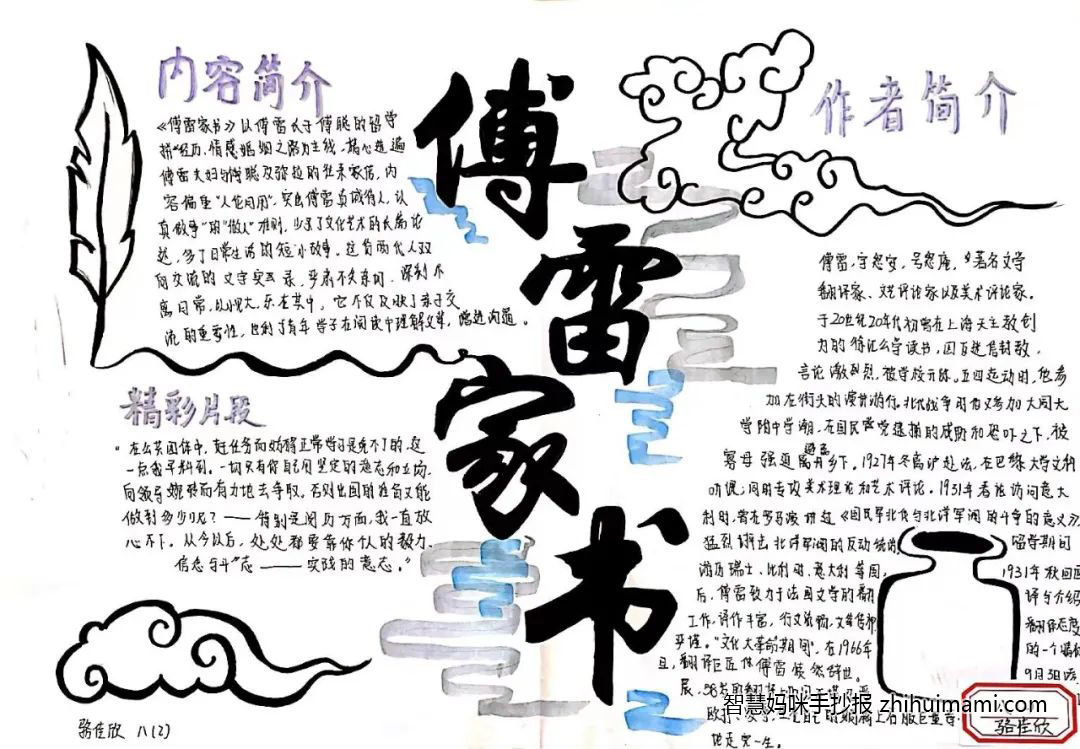 内容简介
《傅雷家书》以傅雷长子傅聪的留学
经历、情感婚姻之路为主线,精心选编
傅雷夫妇与傅聪及弥拉的往来家信,内
容偏重"人伦日用",突出傅雷真诚待人,认
真做事"的"做人"准则,少了文化艺术的长篇论
述,多了日常生活的短小故事。这首两代人双
向交流的文字实录,平斋不失亲切,深刻不
离日常,以小见大,乐在其中,它不仅反映了亲子交
流的重要性,也利于青年学子在阅读中理解父辈,增进沟通。
精彩片段
"在公共团体中,赶任务而妨碍正常学习是免不了的,这
一点我早料到。一切只有你自己用坚定的意志和立场,
向领导婉转而有力地去争取。否则出国的准备又能
做到多少呢?——特别是阅历方面,我一直放
心不下。从今以后,处处都要靠你个人的毅力、
信念与意志——实践的意志。"
骆佳欣 八(2)
傅雷家书
作者简介
傅雷,字怒安,号怒庵,著名文学
翻译家、文艺评论家以及美术评论家。
于20世纪20年代初曾在上海天主教创
力的徐汇公学读书,因反迷信封教,
言论激烈,被学校开除。五四运动时,他参
加在街头的演讲游行。北伐战争时,他又参加大同大
学附中学潮,在国民党逮捕的威胁和恐吓之下,被
寡母强迫避离乡下。1927年冬离沪赴法,在巴黎大学文科
听课;同时专攻美术理论和艺术评论。1931年春访问意大
利时,曾在罗马演讲过《国民军北伐与北洋军阀的斗争的意义》,
猛烈抨击北洋军阀的反动统治。
留学期间
游历瑞士、比利时、意大利等国。
1931年秋回国
后,傅雷致力于法国文学的翻
译与介绍
工作,译作丰富,行文流畅,文笔传神
翻译态度
严谨。"文化大革命"期间",在1966年
的一个
9月3日
旦,翻译巨匠傅雷愤然辞世。
智慧妈咪手抄报 zhihuimami.com
骆佳欣